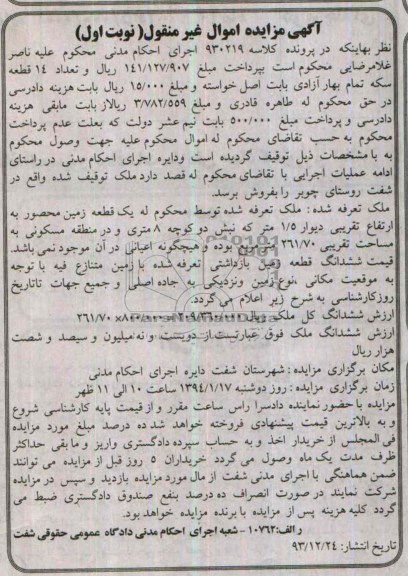 آگهی مزایده اموال غیر منقول( نوبت اول)
نظر بهاینکه در پرونده کلاسه ۹۳۰۲۱۹ اجرای احکام مدنی محکوم علیه ناصر
غلامرضایی محکوم است بپرداخت مبلغ ۱۴۱/۱۲۷/۹۰۷ ریال و تعداد ۱۴ قطعه
سکه تمام بهار آزادی بابت اصل خواسته و مبلغ ۱۵/۰۰۰ ریال بابت هزینه دادرسی
در حق محکوم له طاهره قادری و مبلغ ۳/۷۸۲/۵۵۹ ریالاز بابت مابقی هزینه
دادرسی و پرداخت مبلغ ۵۰۰/۰۰۰ بابت نیم عشر دولت که بعلت عدم پرداخت
محکوم به حسب تقاضای محکوم له اموال محکوم علیه جهت وصول محکوم
به با مشخصات ذیل توقیف گردیده است ودایره اجرای احکام مدنی در راستای
ادامه عملیات اجرایی با تقاضای محکوم له قصد دارد ملک توقیف شده واقع در
شفت روستای چوبر را بفروش برسد.
ملک تعرفه شده : ملک تعرفه شده توسط محکوم له یک قطعه زمین محصور به
ارتفاع تقریبی دیوار ۱/۵ متر که نبش دو کوچه ۸ متری و در منطقه مسکونی به
مساحت تقریبی ۲۶۱/۷۰ متر مربع بوده و هیچگونه اعیانی در آن موجود نمی باشد.
قیمت ششدانگ قطعه زمین بازداشتی تعرفه شده با زمین متنازع فیه با توجه
به موقعیت مکانی ،نوع زمین ونزدیکی به جاده اصلی و جمیع جهات تاتاریخ
روزکارشناسی به شرح زیر اعلام می گردد.
ارزش ششدانگ کل ملک ریال ۲۰۹/۳۶۰/۰۰۰=۸۰۰/۰۰۰× ۲۶۱/۷۰
ارزش ششدانگ ملک فوق عبارتست از دویست و نه میلیون و سیصد و شصت
هزار ریال
مکان برگزاری مزایده : شهرستان شفت دایره اجرای احکام مدنی
زمان برگزاری مزایده : روز دوشنبه ۱۳۹۴/۱/۱۷ ساعت ۱۰ الی ۱۱ ظهر
مزایده با حضور نماینده دادسرا راس ساعت مقرر و از قیمت پایه کارشناسی شروع
و به بالاترین قیمت پیشنهادی فروخته خواهد شد ده درصد مبلغ مورد مزایده
فی المجلس از خریدار اخذ و به حساب سپرده دادگستری واریز و ما بقی حداکثر
ظرف مدت یک ماه وصول می گردد خریداران ۵ روز قبل از مزایده می توانند
ضمن هماهنگی با اجرای مدنی شفت از مال مورد مزایده بازدید و سپس در مزایده
شرکت نمایند در صورت انصراف ده درصد بنفع صندوق دادگستری ضبط می
گردد کلیه هزینه پس از مزایده با برنده مزایده خواهد بود.
ر الف: ۱۰۷۶۲- شعبه اجرای احکام مدنی دادگاه عمومی حقوقی شفت
تاریخ انتشار: ۹۳/۱۲/۲۴